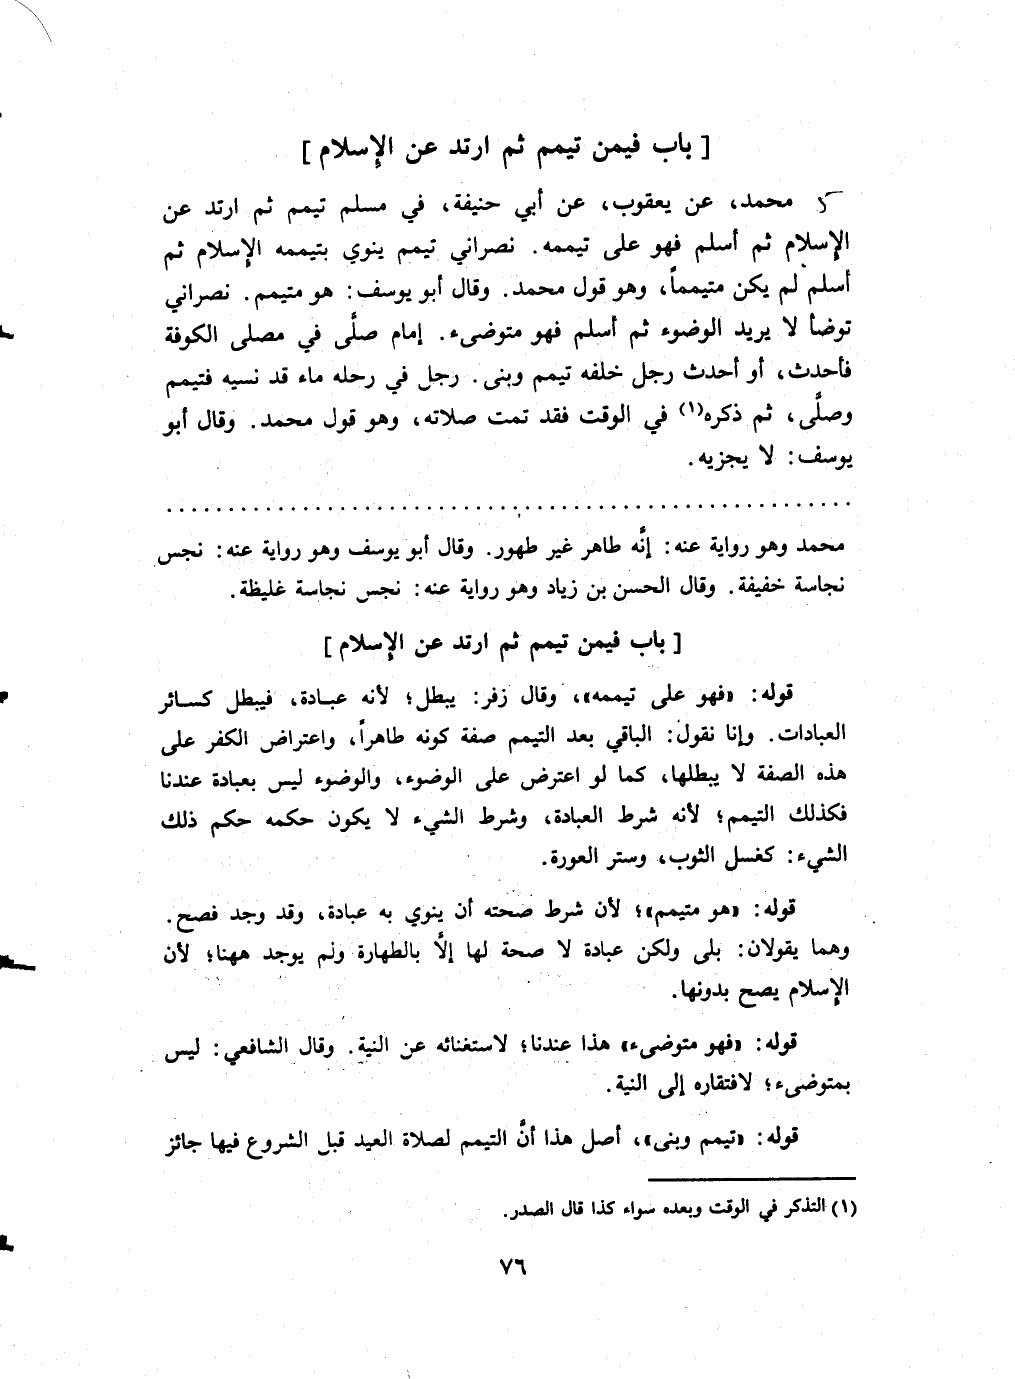 [ باب فيمن تيمم ثم ارتد عن الإسلام ]
محمد، عن يعقوب، عن أبي حنيفة، في مسلم تيمم ثم ارتد عن
الإسلام ثم أسلم فهو على تيممه. نصراني تيمم ينوي بتيممه الإسلام ثم
أسلم لم يكن متيمماً، وهو قول محمد. وقال أبو يوسف: هو متيمم. نصراني
توضأ لا يريد الوضوء ثم أسلم فهو متوضىء. إمام صلَّى في مصلى الكوفة
فأحدث، أو أحدث رجل خلفه تيمم وبنى. رجل في رحله ماء قد نسيه فتيمم
وصلَّى، ثم ذكره(١) في الوقت فقد تمت صلاته، وهو قول محمد. وقال أبو
يوسف: لا يجزيه.
محمد وهو رواية عنه: إنَّه طاهر غير طهور. وقال أبو يوسف وهو رواية عنه: نجس
نجاسة خفيفة. وقال الحسن بن زياد وهو رواية عنه: نجس نجاسة غليظة.
[ باب فيمن تيمم ثم ارتد عن الإسلام ]
قوله: «فهو على تيممه»، وقال زفر: يبطل؛ لأنه عبادة، فيبطل كسائر
العبادات. وإنا نقول: الباقي بعد التيمم صفة كونه طاهراً، واعتراض الكفر على
هذه الصفة لا يبطلها، كما لو اعترض على الوضوء، والوضوء ليس بعبادة عندنا
فكذلك التيمم؛ لأنه شرط العبادة، وشرط الشيء لا يكون حكمه حكم ذلك
الشيء: كغسل الثوب، وستر العورة.
قوله: «هو متيمم»؛ لأن شرط صحته أن ينوي به عبادة، وقد وجد فصح.
وهما يقولان: بلى ولكن عبادة لا صحة لها إلَّا بالطهارة ولم يوجد ههنا؛ لأن
الإسلام يصح بدونها.
قوله: «فهو متوضىء» هذا عندنا؛ لاستغنائه عن النية. وقال الشافعي: ليس
بمتوضىء؛ لافتقاره إلى النية.
قوله: «تيمم وبنى»، أصل هذا أنَّ التيمم لصلاة العيد قبل الشروع فيها جائز
(١) التذكر في الوقت وبعده سواء كذا قال الصدر.
٧٦